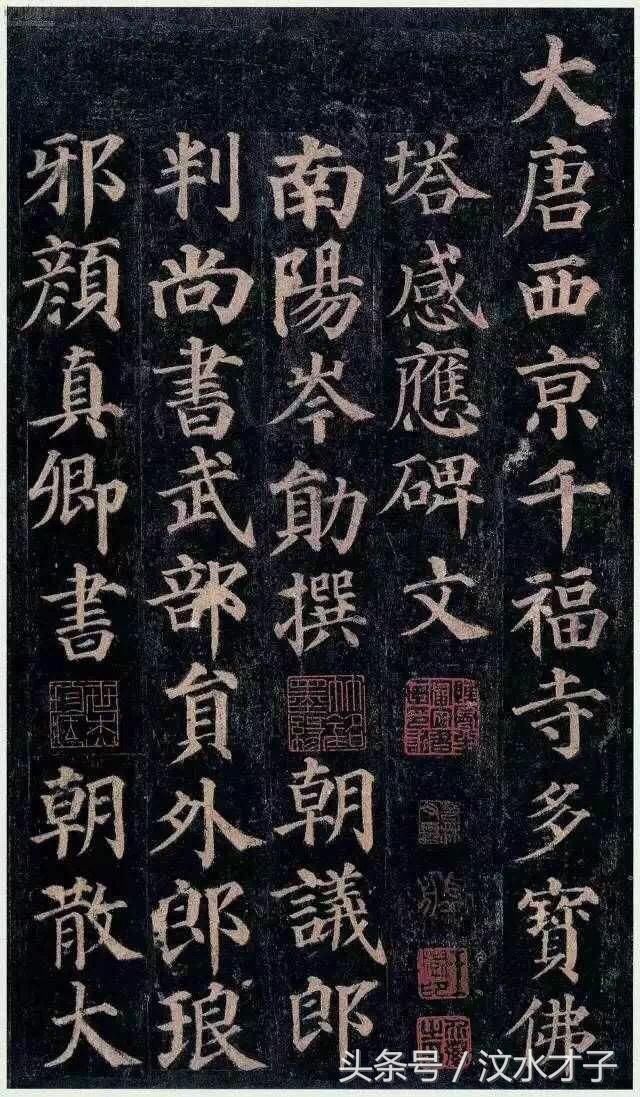 大唐西亰千福寺多寳佛
塔感應碑文
南陽岑勛撰 朝議郎
判尚書武部員外郎琅
邪顔真卿書 朝散大
头条号 / 汶水才子